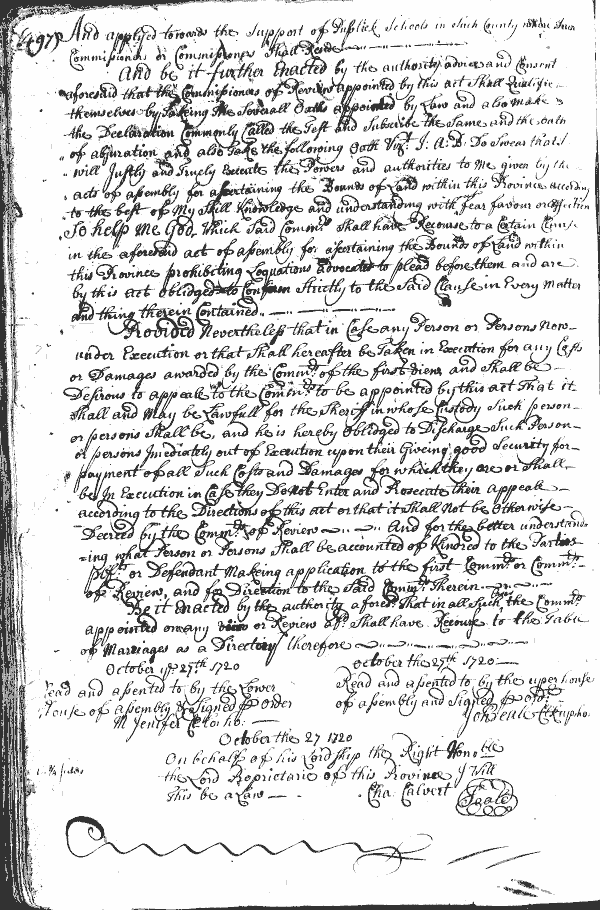 497
And applyed towards the Support of Publick Schools in Such County where Such
Commissioner or Commissioners Shall Reside
And be it further Enacted by the authority advice and Consent
aforesaid that the Commissioners of Review appointed by this act Shall Qualifie
themselves by Taking the Severall Oaths appointed by Law and also make
the Declaration Commonly Called the Test and Subscribe the Same and the Oath
of abjuration and also Take the following Oath Vizt. I: A: B: Do Swear that I
will Justly and Truely Execute the Powers and authorities to Me given by the
acts of assembly for ascertaining the Bounds of Land within this Province according
to the best of My Skill Knowledge and understanding with fear favour or affection
So help me God, Which Said Comrs. Shall have Recourse to a Certain Clause
in the aforesaid act of assembly for ascertaining the Bounds of Land within
this Province prohibiting Loquations advocates to plead before them and are
by this act obliged to Conform Strictly to the Said Clause in Every Matter
and thing therein Contained.
Provided Nevertheless that in Case any Person or Persons Now
under Execution or that Shall hereafter be Taken in Execution for any Costs
or Damages awarded by the Commrs. of the first View, and Shall be
Desirous to appeale to the Commrs. to be appointed by this act That it
Shall and May be Lawfull for the Sheriff in whose Custody Such person
or persons Shall be, and he is hereby obliged to Discharge Such Person
or persons Imediately out of Execution upon their Giveing good Security for
payment of all Such Costs and Damages for which they are or Shall
be In Execution in Case they Do Not Enter and Prosecute their appeale
according to the Directions of this act or that it Shall Not be Otherwise
Decreed by the Commrs. of Review And for the better understand
=ing what Person or Persons Shall be accounted of Kindred to the Parties
pltf. or Defendant Makeing application to the first Commrs. or Commrs.
of Review, and for Direction to the Said Commrs. Therein
Be it Enacted by the authority aforesd. That in all Such Cases the Commrs.
appointed on any View or Review afd. Shall have Recourse to the Table
of Marriages as a Directory therefore
October ye 27th 1720
Read and assented to by the Lower
House of assembly & Signed P Order
M Jenifer Cl Lo: ho:
October the 27th. 1720
Read and assented to by the upper house
of assembly and Signed P Ordr.
Jon Beale Cl up ho:
October the 27 1720
On behalf of his Lordship the Right Honoble
the Lord Proprietarie of this Province I Will
This be a Law
Cha: Calvert
Seale